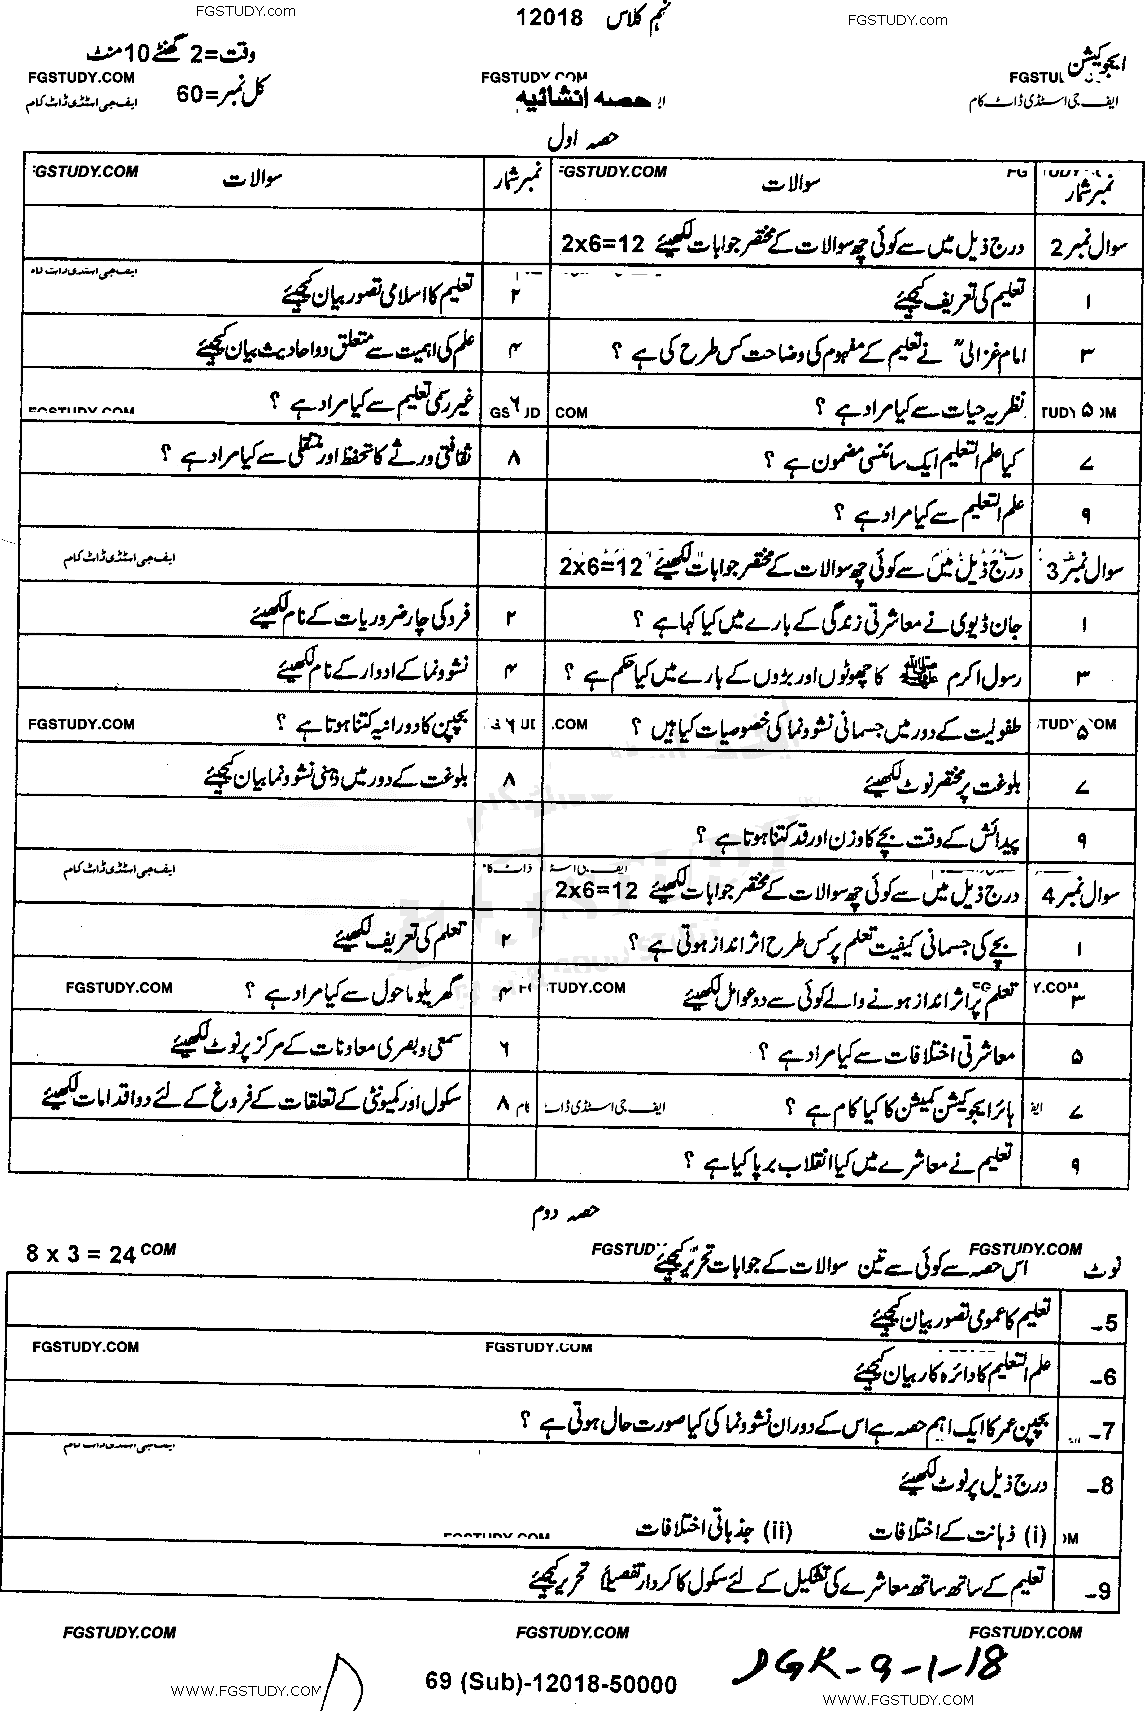 FGSTUDY.com نہم کلاس 12018 FGSTUDY.com
ایجوکیشن وقت=2 گھنٹے 10 منٹ
FGSTUDY.COM FGSTUDY.COM
کل نمبر=60
ایف جی اسٹڈی ڈاٹ کام حصہ انشائیہ ایف جی اسٹڈی ڈاٹ کام
حصہ اول
نمبر شمار سوالات نمبر شمار سوالات
FGSTUDY.COM FGSTUDY.COM
سوال نمبر 2 درج ذیل میں سے کوئی چھ سوالات کے مختصر جوابات لکھیئے 2x6=12
۱ تعلیم کی تعریف کیجیئے ۲ تعلیم کا اسلامی تصور بیان کیجیئے
۳ امام غزالیؒ نے تعلیم کے مفہوم کی وضاحت کس طرح کی ہے ؟ ۴ علم کی اہمیت سے متعلق دو احادیث بیان کیجیئے
۵ نظریہ حیات سے کیا مراد ہے ؟ ۶ غیر رسمی تعلیم سے کیا مراد ہے ؟
۷ کیا علم التعلیم ایک سائنسی مضمون ہے ؟ ۸ ثقافتی ورثے کا تحفظ اور منتقلی سے کیا مراد ہے ؟
۹ علم التعلیم سے کیا مراد ہے ؟
سوال نمبر 3 درج ذیل میں سے کوئی چھ سوالات کے مختصر جوابات لکھیئے 2x6=12 ایف جی اسٹڈی ڈاٹ کام
۱ جان ڈیوی نے معاشرتی زندگی کے بارے میں کیا کہا ہے ؟ ۲ فرد کی چار ضروریات کے نام لکھیئے
۳ رسول اکرم ﷺ کا چھوٹوں اور بڑوں کے بارے میں کیا حکم ہے ؟ ۴ نشوونما کے ادوار کے نام لکھیئے
۵ طفولیت کے دور میں جسمانی نشوونما کی خصوصیات کیا ہیں ؟ ۶ بچپن کا دورانیہ کتنا ہوتا ہے ؟ FGSTUDY.COM
۷ بلوغت پر مختصر نوٹ لکھیئے ۸ بلوغت کے دور میں ذہنی نشوونما بیان کیجیئے
۹ پیدائش کے وقت بچے کا وزن اور قد کتنا ہوتا ہے ؟
سوال نمبر 4 درج ذیل میں سے کوئی چھ سوالات کے مختصر جوابات لکھیئے 2x6=12 ایف جی اسٹڈی ڈاٹ کام
۱ بچے کی جسمانی کیفیت تعلم پر کس طرح اثر انداز ہوتی ہے ؟ ۲ تعلم کی تعریف لکھیئے
۳ تعلم پر اثر انداز ہونے والے کوئی سے دو عوامل لکھیئے ۴ گھریلو ماحول سے کیا مراد ہے ؟ FGSTUDY.COM
۵ معاشرتی اختلافات سے کیا مراد ہے ؟ ۶ سمعی و بصری معاونات کے مرکز پر نوٹ لکھیئے
۷ ہائر ایجوکیشن کمیشن کا کیا کام ہے ؟ ۸ سکول اور کمیونٹی کے تعلقات کے فروغ کے لئے دو اقدامات لکھیئے
۹ تعلیم نے معاشرے میں کیا انقلاب برپا کیا ہے ؟
حصہ دوم
نوٹ اس حصہ سے کوئی سے تین سوالات کے جوابات تحریر کیجیئے 8 x 3 = 24
5- تعلیم کا عمومی تصور بیان کیجیئے
FGSTUDY.COM FGSTUDY.COM
6- علم التعلیم کا دائرہ کار بیان کیجیئے
7- بچپن عمر کا ایک اہم حصہ ہے اس کے دوران نشوونما کی کیا صورت حال ہوتی ہے ؟
8- درج ذیل پر نوٹ لکھیئے
(i) ذہانت کے اختلافات (ii) جذباتی اختلافات
9- تعلیم کے ساتھ ساتھ معاشرے کی تشکیل کے لئے سکول کا کردار تفصیلاً تحریر کیجیئے
FGSTUDY.COM FGSTUDY.COM FGSTUDY.COM
69 (Sub)-12018-50000 DGK-9-1-18
WWW.FGSTUDY.COM WWW.FGSTUDY.COM